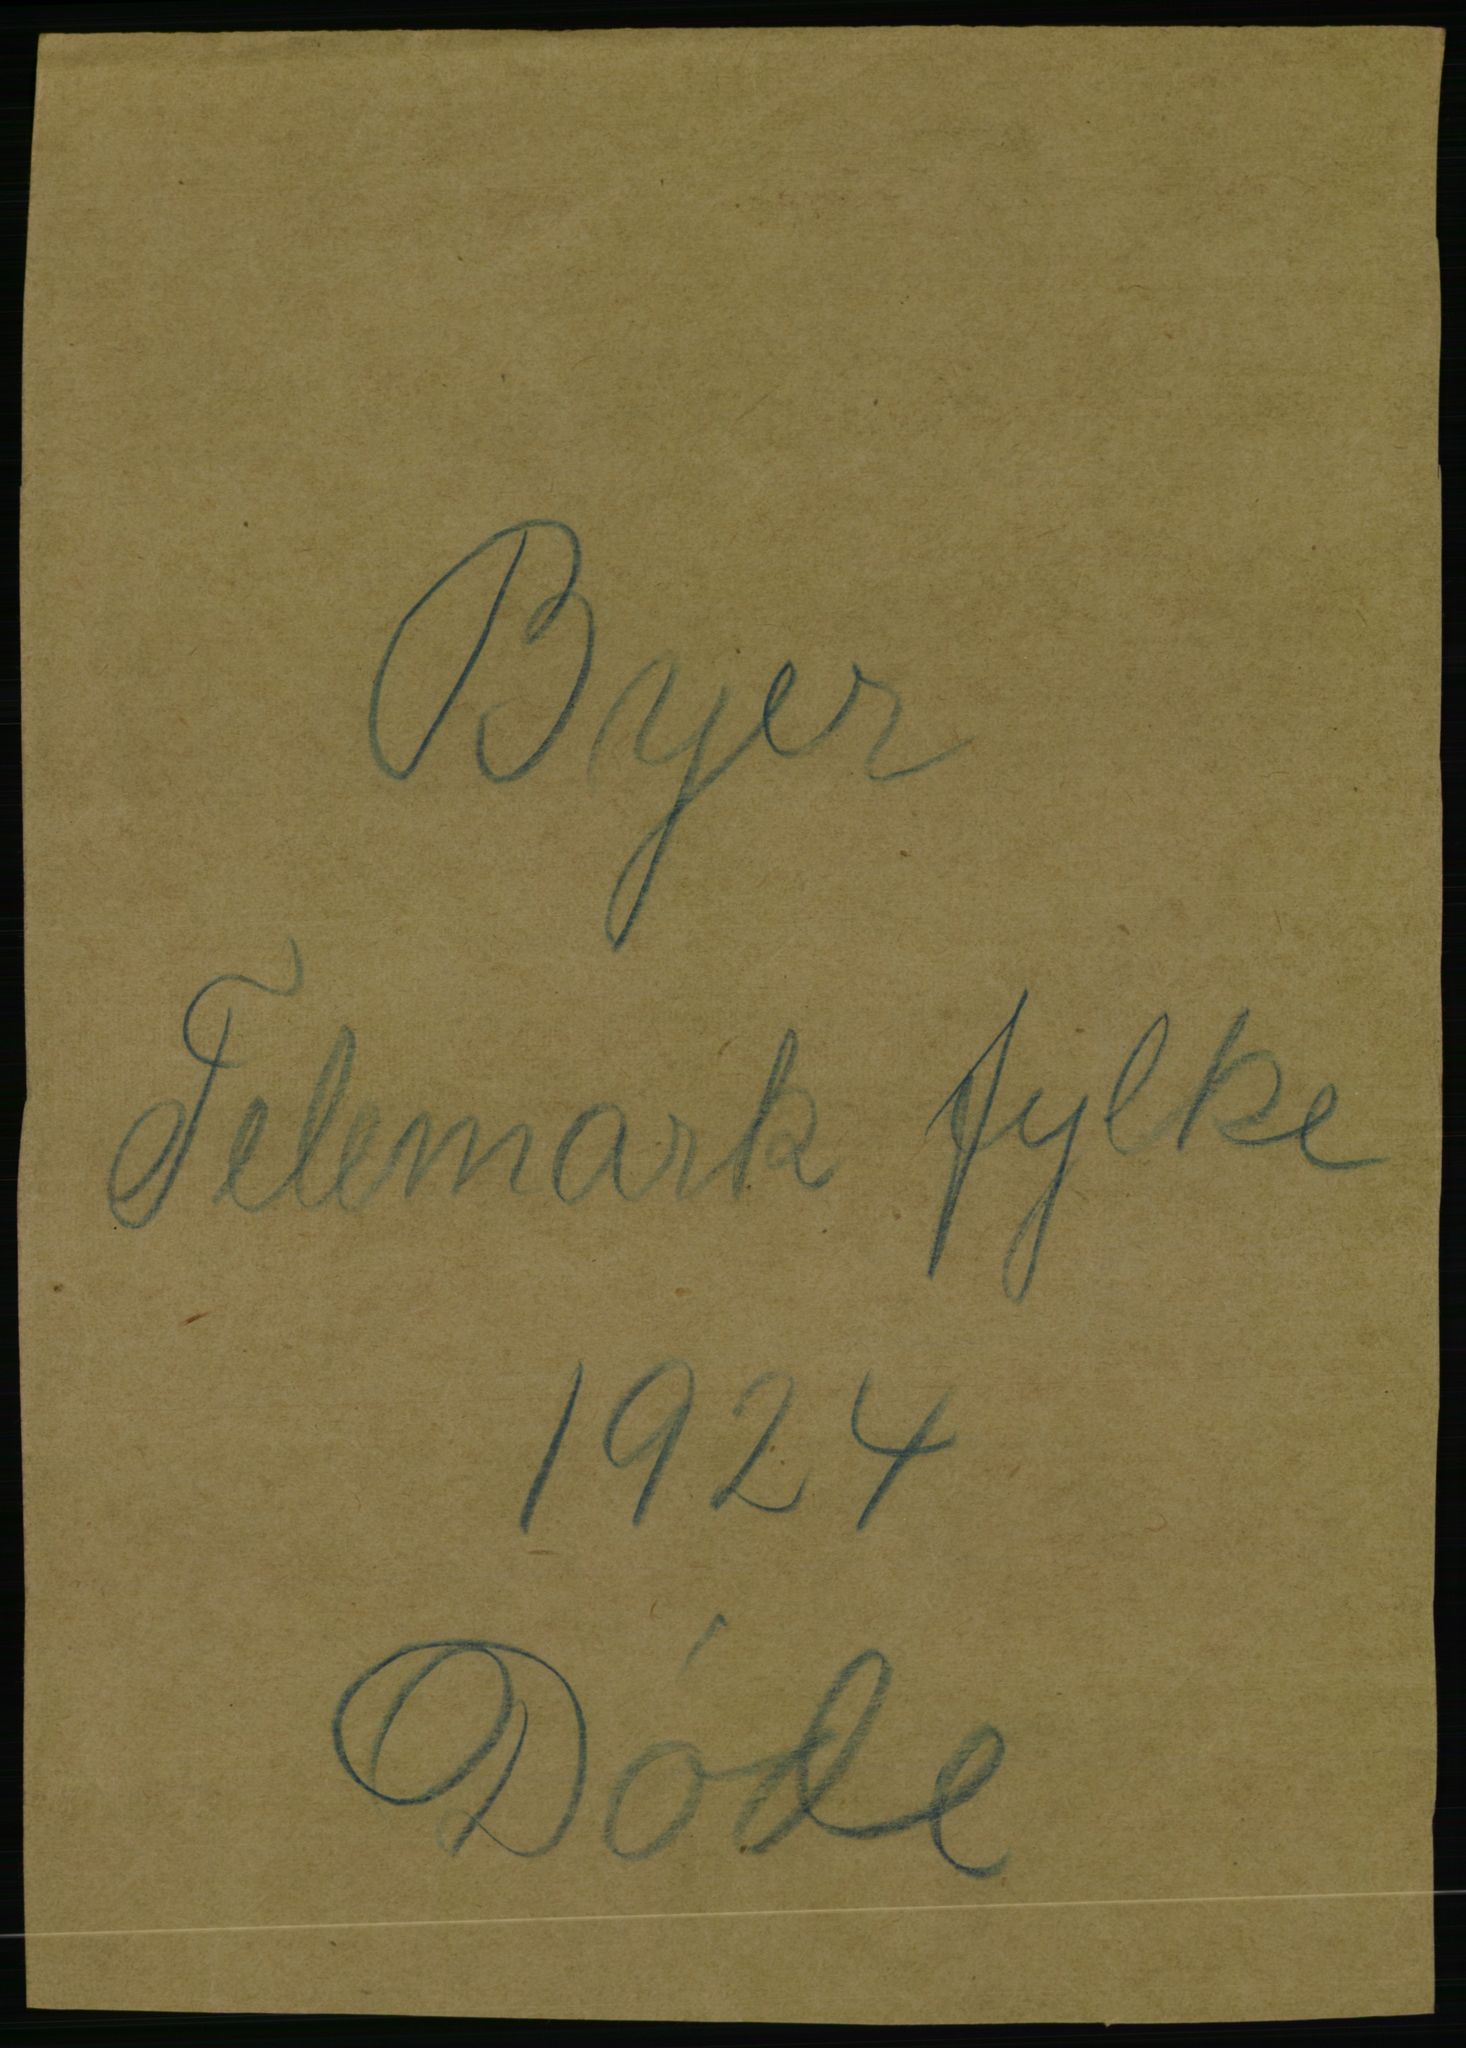 Byer
Telemark fylke
1924
Døde